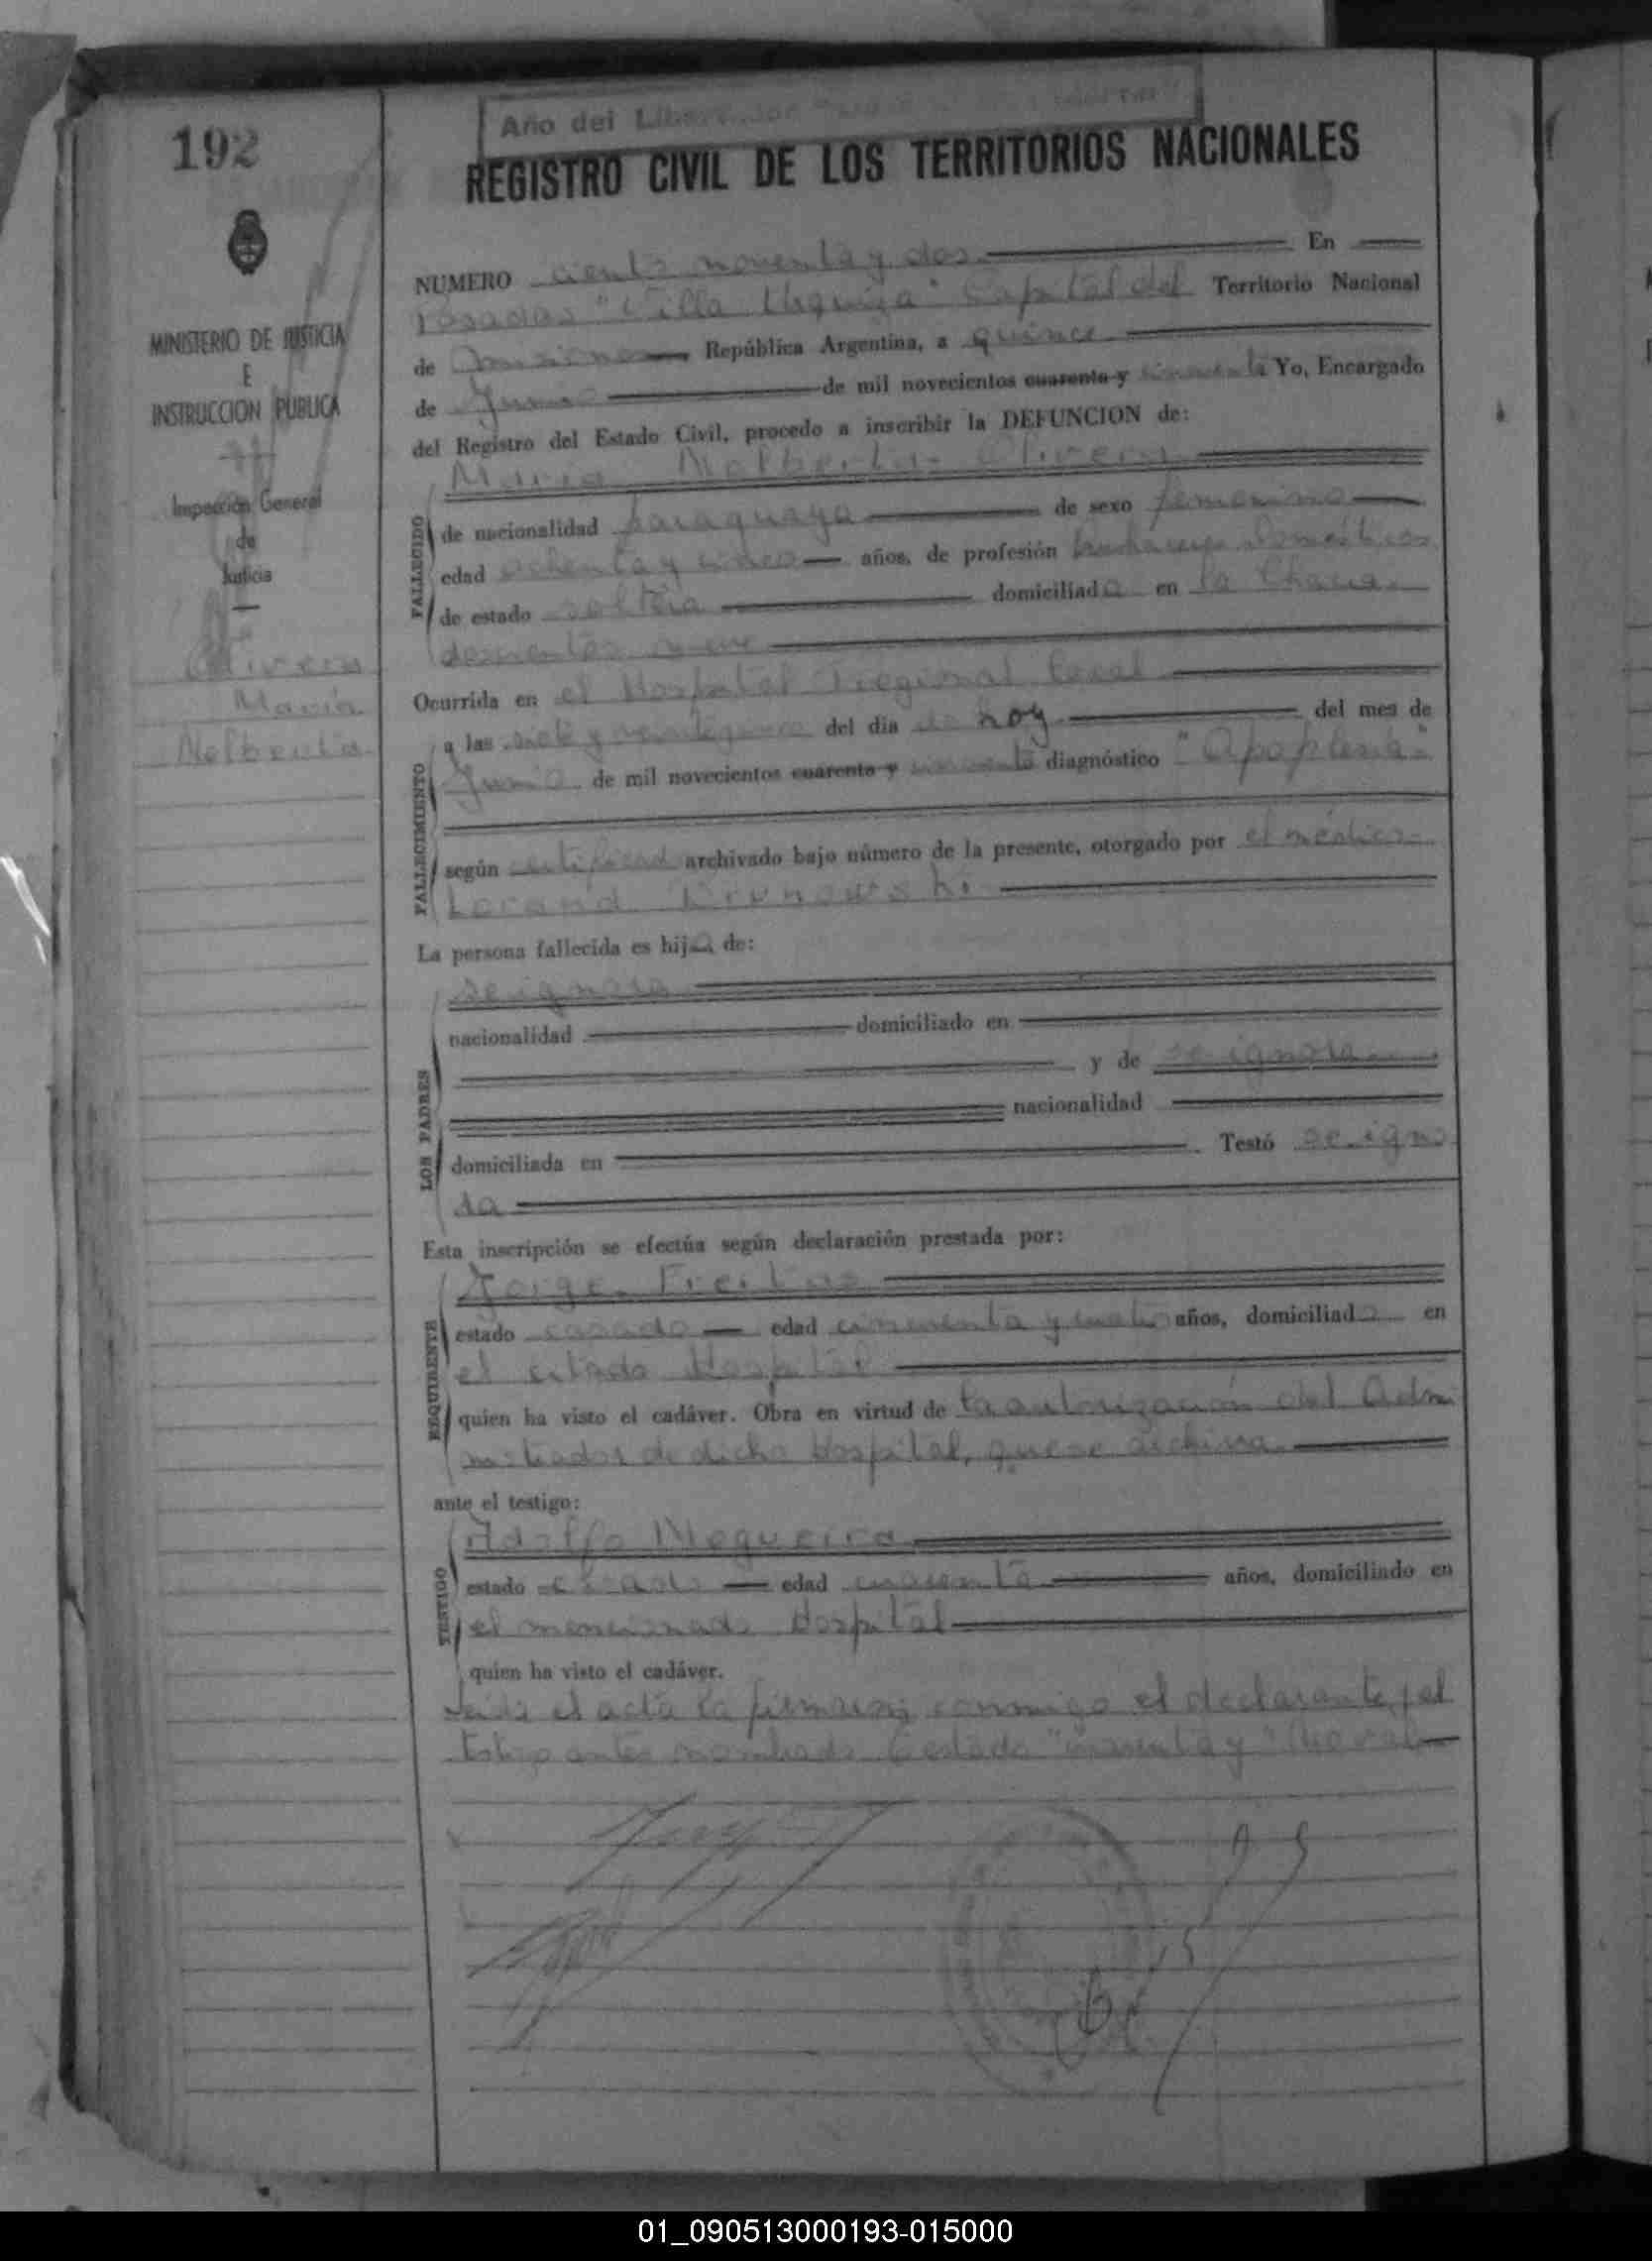 192
Año del Libertador
REGISTRO CIVIL DE LOS TERRITORIOS NACIONALES
MINISTERIO DE JUSTICIA
E
INSTRUCCION PUBLICA
Inspección General
de
Justicia
Olivera
María
Melbenta
NUMERO ciento noventa y dos En
Posadas "Villa Urquiza" Capital del Territorio Nacional
de Misiones República Argentina, a quince
de Junio de mil novecientos cuarenta y cincuenta Yo, Encargado
del Registro del Estado Civil, procedo a inscribir la DEFUNCION de:
María Olivera
FALLECIDO
de nacionalidad paraguaya de sexo femenino
edad ochenta y cinco años, de profesión domésticos
de estado soltera domiciliada en la Chacra
doscientos nueve
Ocurrida en el Hospital Regional local
FALLECIMIENTO
a las siete y del día de hoy del mes de
Junio de mil novecientos cuarenta y cincuenta diagnóstico "Apoplexia"
según certificado archivado bajo número de la presente, otorgado por el médico
La persona fallecida es hija de:
LOS PADRES
se ignora
nacionalidad domiciliado en
y de se ignora
nacionalidad
domiciliada en Testó se igno
ra
Esta inscripción se efectúa según declaración prestada por:
REQUIRENTE
Jorge Freitas
estado casado edad cincuenta y cuatro años, domiciliado en
el citado Hospital
quien ha visto el cadáver. Obra en virtud de la autorización del Admi
nistrador de dicho Hospital, que se archiva
ante el testigo:
TESTIGO
Adolfo Nogueira
estado casado edad cuarenta años, domiciliado en
el mencionado Hospital
quien ha visto el cadáver.
Leida el acta la firmaron conmigo el declarante y el
testigo antes nombrado Testado "cuarenta y" No vale
01_090513000193-015000